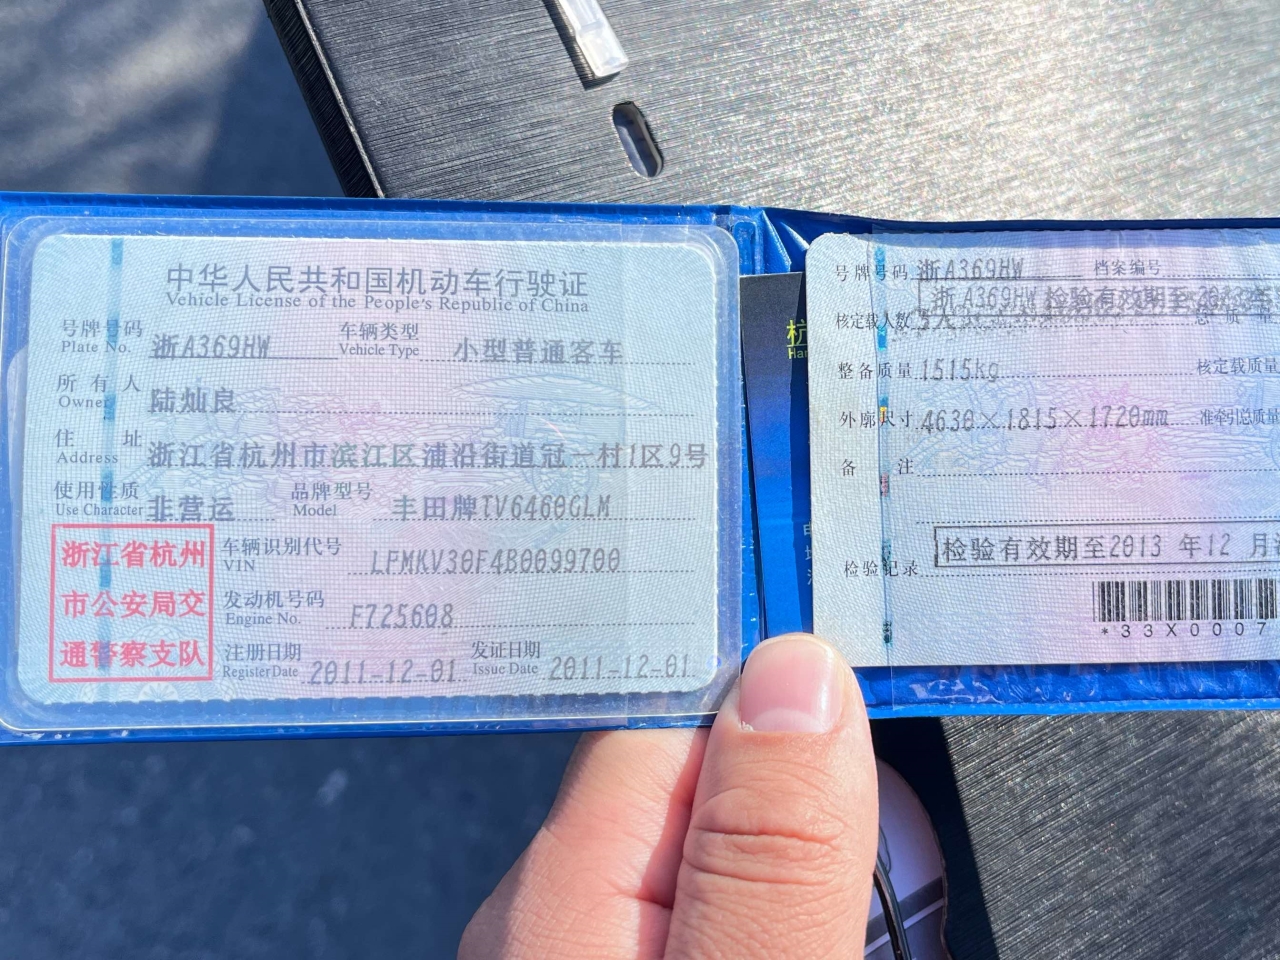 中华人民共和国机动车行驶证
Vehicle License of the People's Republic of China
号牌号码 浙A369HW 车辆类型 小型普通客车
Plate No. Vehicle Type
所有人 陆灿良
Owner
住址 浙江省杭州市滨江区浦沿街道冠一村1区9号
Address
使用性质 非营运 品牌型号 丰田牌TV6460GLM
Use Character Model
浙江省杭州
市公安局交
通警察支队
车辆识别代号 LPMKV30F4B0099700
VIN
发动机号码 F725608
Engine No.
注册日期 2011-12-01 发证日期 2011-12-01
Register Date Issue Date
杭
Han
号牌号码 浙A369HW 档案编号
浙A369HW 检验有效期至
核定载人数 总质
整备质量 1515kg 核定载质量
外廓尺寸 4630×1815×1720mm 准牵引总质量
备注
检验有效期至2013 年12 月
检验记录
*33X0007